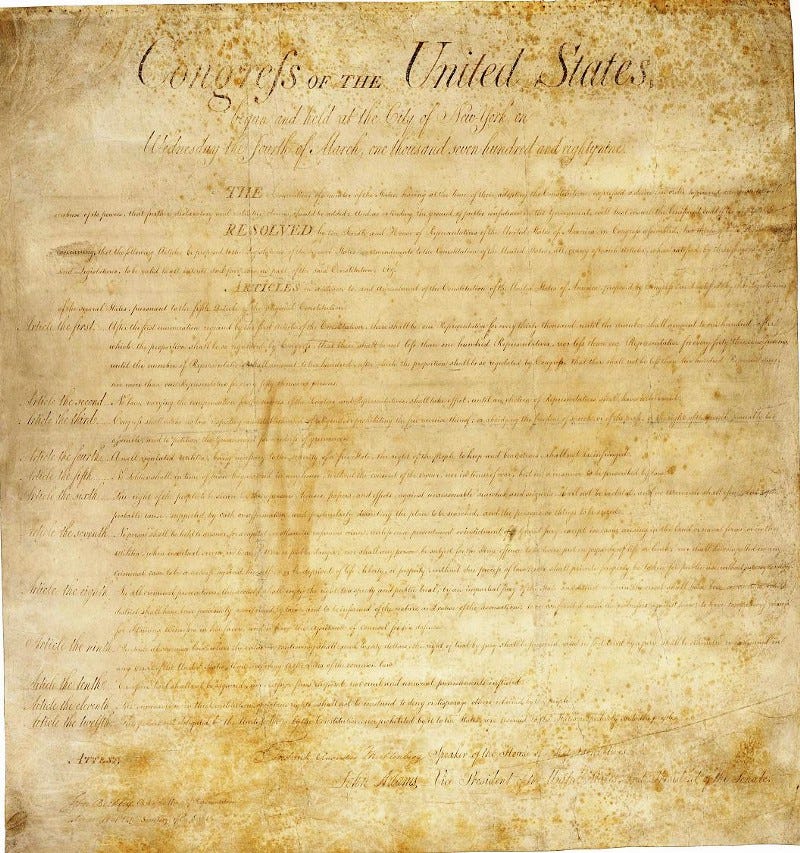 Congreſs OF THE United States,
begun and held at the City of New York, on
Wednesday the fourth of March, one thousand seven hundred and eighty nine.
THE Conventions of a number of the States, having at the time of their adopting the Constitution, expressed a desire, in order to prevent
abuse of its powers, that further declaratory and restrictive clauses should be added
RESOLVED by the Senate and House of Representatives of the United States of America in Congress assembled, two thirds of
concurring, that the following Articles be proposed to the Legislatures of the several States, as amendments to the Constitution of the United States, all, or any of which Articles, when ratified by three fourths of the
said Legislatures, to be valid to all intents and purposes, as part of the said Constitution; viz.
ARTICLES in addition to, and Amendment of the Constitution of the United States of America, proposed by Congress, and ratified by the Legislatures
of the several States, pursuant to the fifth Article of the original Constitution.
Article the first. After the first enumeration required by the first Article of the Constitution, there shall be one Representative for every thirty thousand, until the number shall amount to one hundred, after
which, the proportion shall be so regulated by Congress, that there shall be not less than one hundred Representatives, nor less than one Representative for every forty thousand persons,
until the number of Representatives shall amount to two hundred, after which the proportion shall be so regulated by Congress, that there shall not be less than two hundred Representatives,
nor more than one Representative for every fifty thousand persons.
Article the second. No law, varying the compensation for the services of the Senators and Representatives, shall take effect, until an election of Representatives shall have intervened.
Article the third. Congress shall make no law respecting an establishment of religion, or prohibiting the free exercise thereof; or abridging the freedom of speech, or of the press; or the right of the people peaceably to
assemble, and to petition the Government for a redress of grievances.
Article the fourth. A well regulated militia, being necessary to the security of a free State, the right of the people to keep and bear arms, shall not be infringed.
Article the fifth. No Soldier shall, in time of peace be quartered in any house, without the consent of the owner, nor in time of war, but in a manner to be prescribed by law.
Article the sixth. The right of the people to be secure in their persons, houses, papers, and effects, against unreasonable searches and seizures, shall not be violated, and no warrants shall issue, but upon
probable cause, supported by oath or affirmation, and particularly describing the place to be searched, and the persons or things to be seized.
Article the seventh. No person shall be held to answer for a capital, or otherwise infamous crime, unless on a presentment or indictment of a grand jury, except in cases arising in the land or naval forces, or in the
militia, when in actual service in time of war or public danger; nor shall any person be subject for the same offence to be twice put in jeopardy of life or limb; nor shall be compelled in any
criminal case, to be a witness against himself, nor be deprived of life, liberty, or property, without due process of law; nor shall private property be taken for public use without just compensation.
Article the eighth. In all criminal prosecutions, the accused shall enjoy the right to a speedy and public trial, by an impartial jury of the State and district wherein the crime shall have been committed, which
district shall have been previously ascertained by law, and to be informed of the nature and cause of the accusation; to be confronted with the witnesses against him; to have compulsory process
for obtaining witnesses in his favor, and to have the assistance of counsel for his defence.
Article the ninth. In suits at common law, where the value in controversy shall exceed twenty dollars, the right of trial by jury shall be preserved, and no fact tried by a jury shall be otherwise re-examined in
any court of the United States, than according to the rules of the common law.
Article the tenth. Excessive bail shall not be required, nor excessive fines imposed, nor cruel and unusual punishments inflicted.
Article the eleventh. The enumeration in the Constitution, of certain rights, shall not be construed to deny or disparage others retained by the people.
Article the twelfth. The powers not delegated to the United States by the Constitution, nor prohibited by it to the States, are reserved to the States respectively, or to the people.
ATTEST,
Frederick Augustus Muhlenberg Speaker of the House of Representatives.
John Adams, Vice President of the United States, and President of the Senate.
John Beckley, Clerk of the House of Representatives
Secretary of the Senate